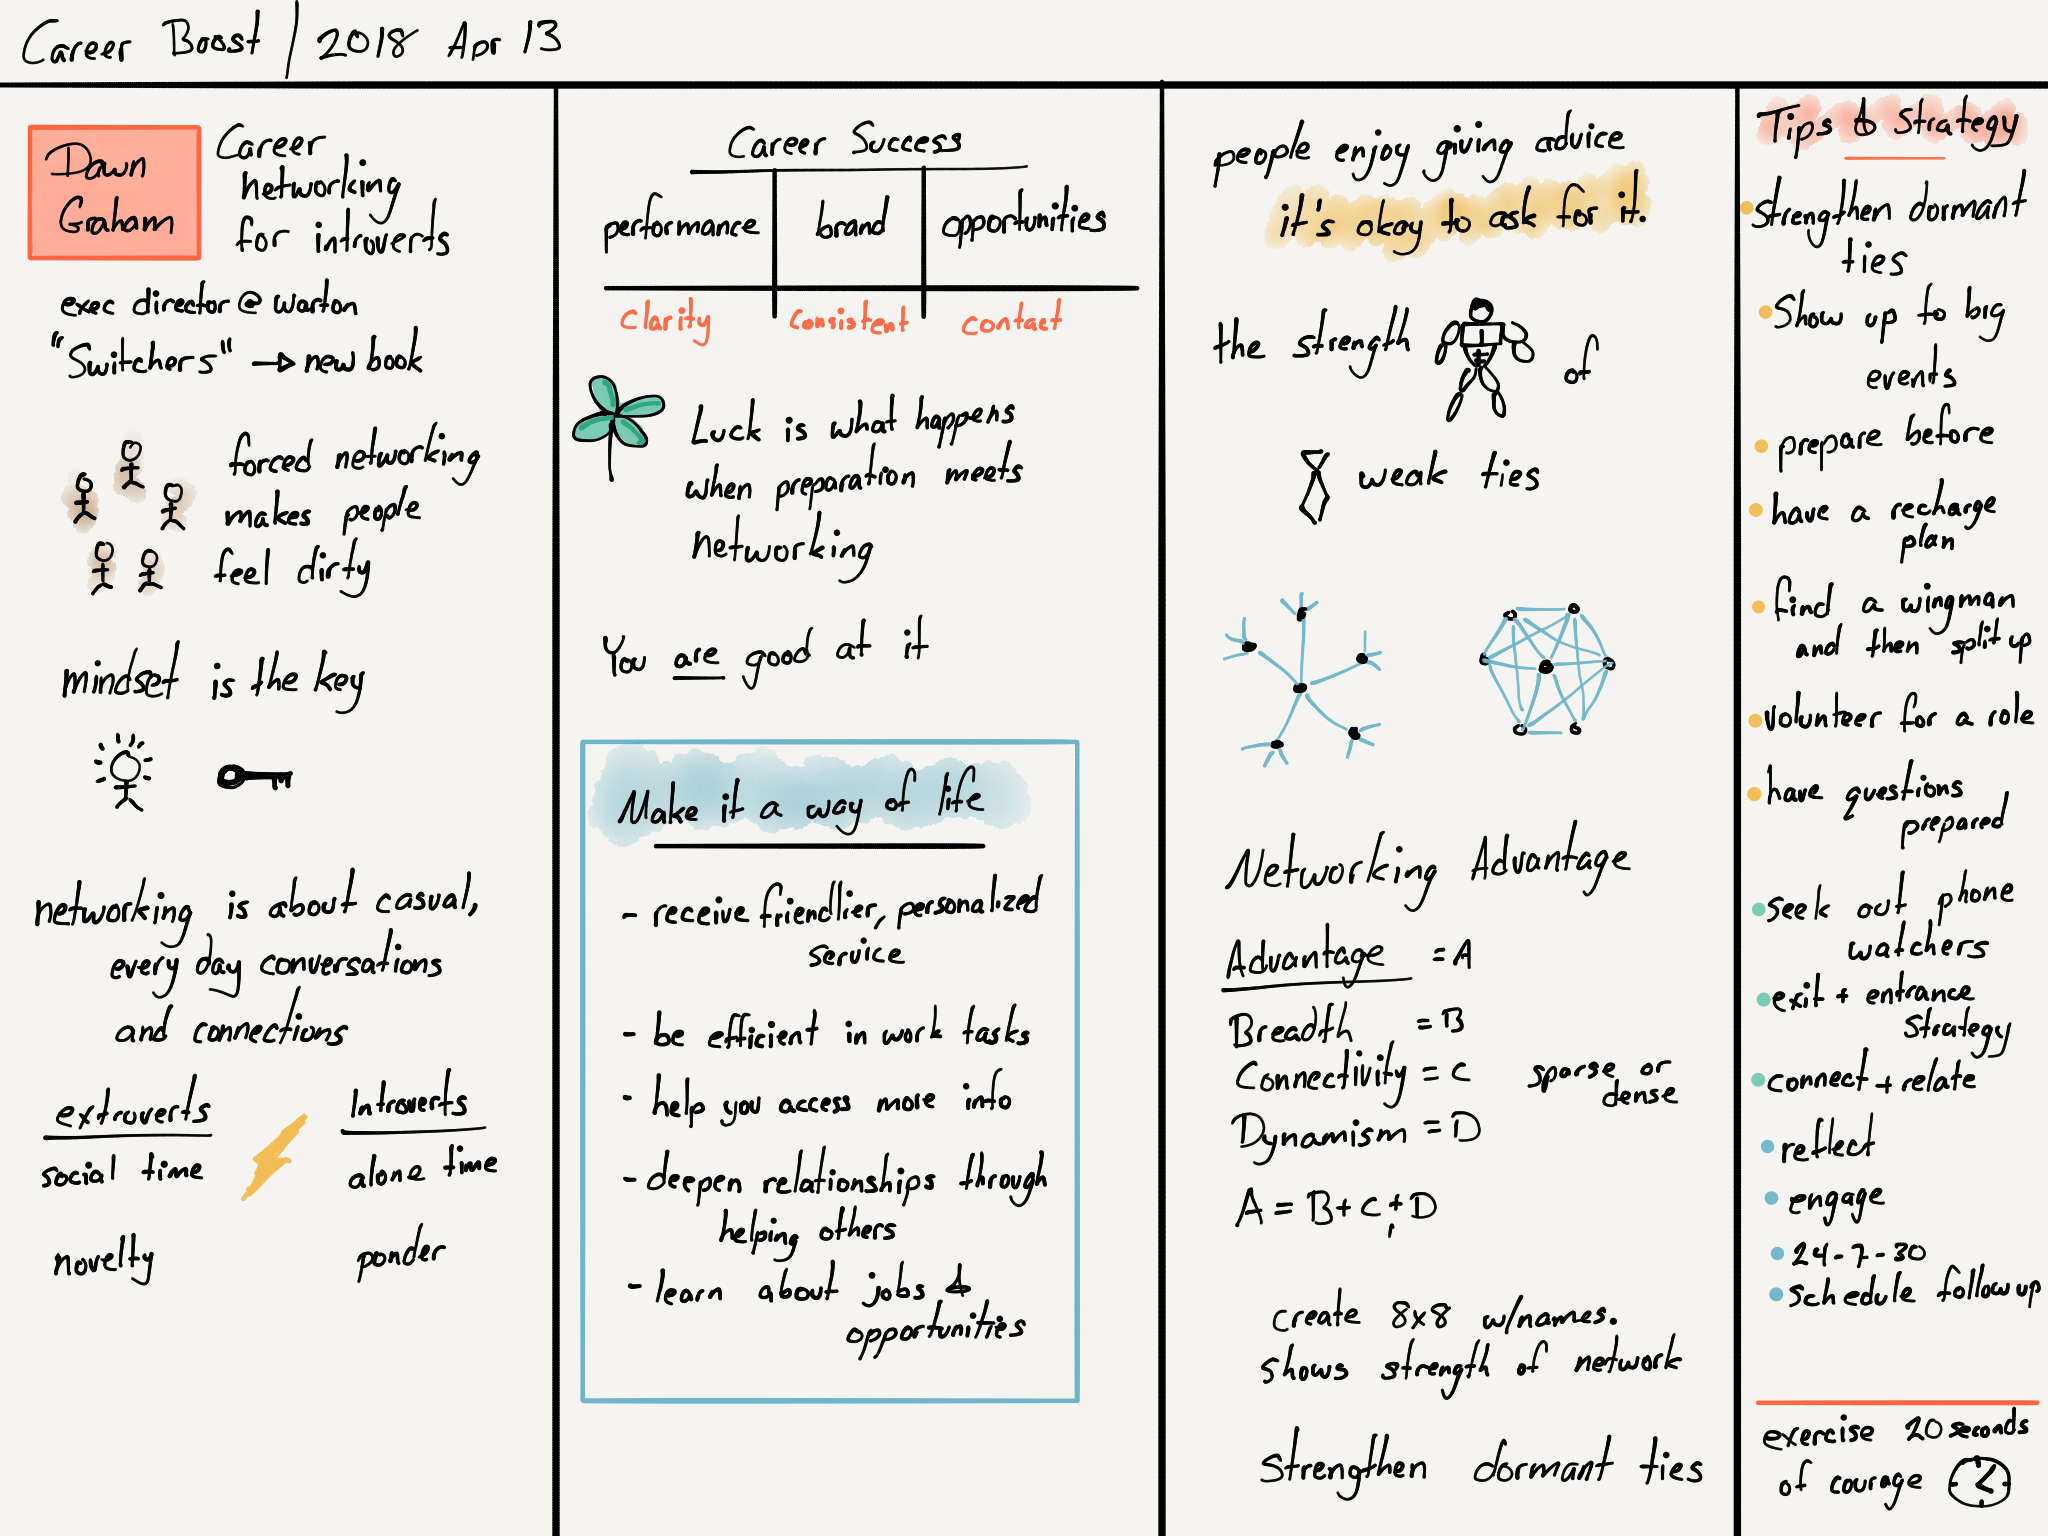 Career Boost / 2018 Apr 13
Dawn
Graham
Career
networking
for introverts
exec director @ Warton
"Switchers" → new book
forced networking
makes people
feel dirty
mindset is the key
networking is about casual,
every day conversations
and connections
extroverts
social time
novelty
Introverts
alone time
ponder
Career Success
performance brand opportunities
clarity consistent contact
Luck is what happens
when preparation meets
networking
You are good at it
Make it a way of life
- receive friendlier, personalized
service
- be efficient in work tasks
- help you access more info
- deepen relationships through
helping others
- learn about jobs &
opportunities
people enjoy giving advice
it's okay to ask for it.
the strength of
weak ties
Networking Advantage
Advantage = A
Breadth = B
Connectivity = C sparse or
dense
Dynamism = D
A = B + C + D
create 8x8 w/names.
shows strength of network
Strengthen dormant ties
Tips & Strategy
• Strengthen dormant
ties
• Show up to big
events
• prepare before
• have a recharge
plan
• find a wingman
and then split up
• volunteer for a role
• have questions
prepared
• seek out phone
watchers
• exit + entrance
strategy
• connect + relate
• reflect
• engage
• 24-7-30
• schedule follow up
exercise 20 seconds
of courage